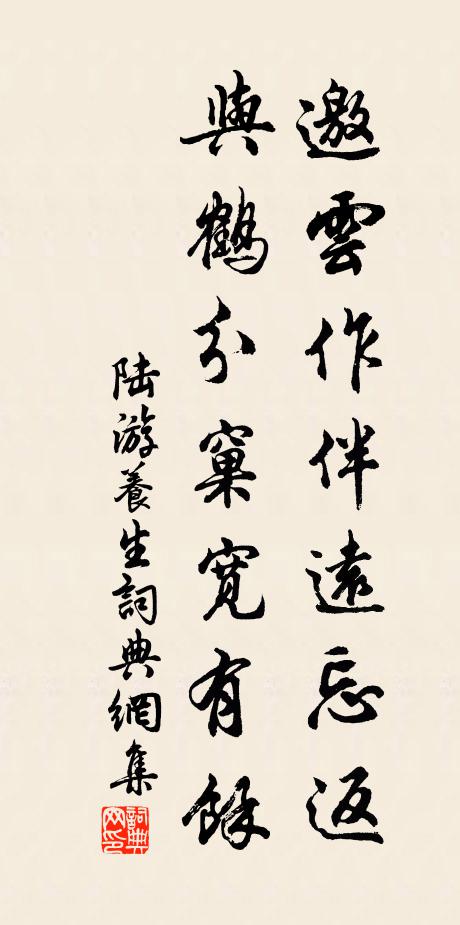 邀雲作伴遠忘返
與鶴分窠寬有餘
陸游養生詞典網集
詞典網印